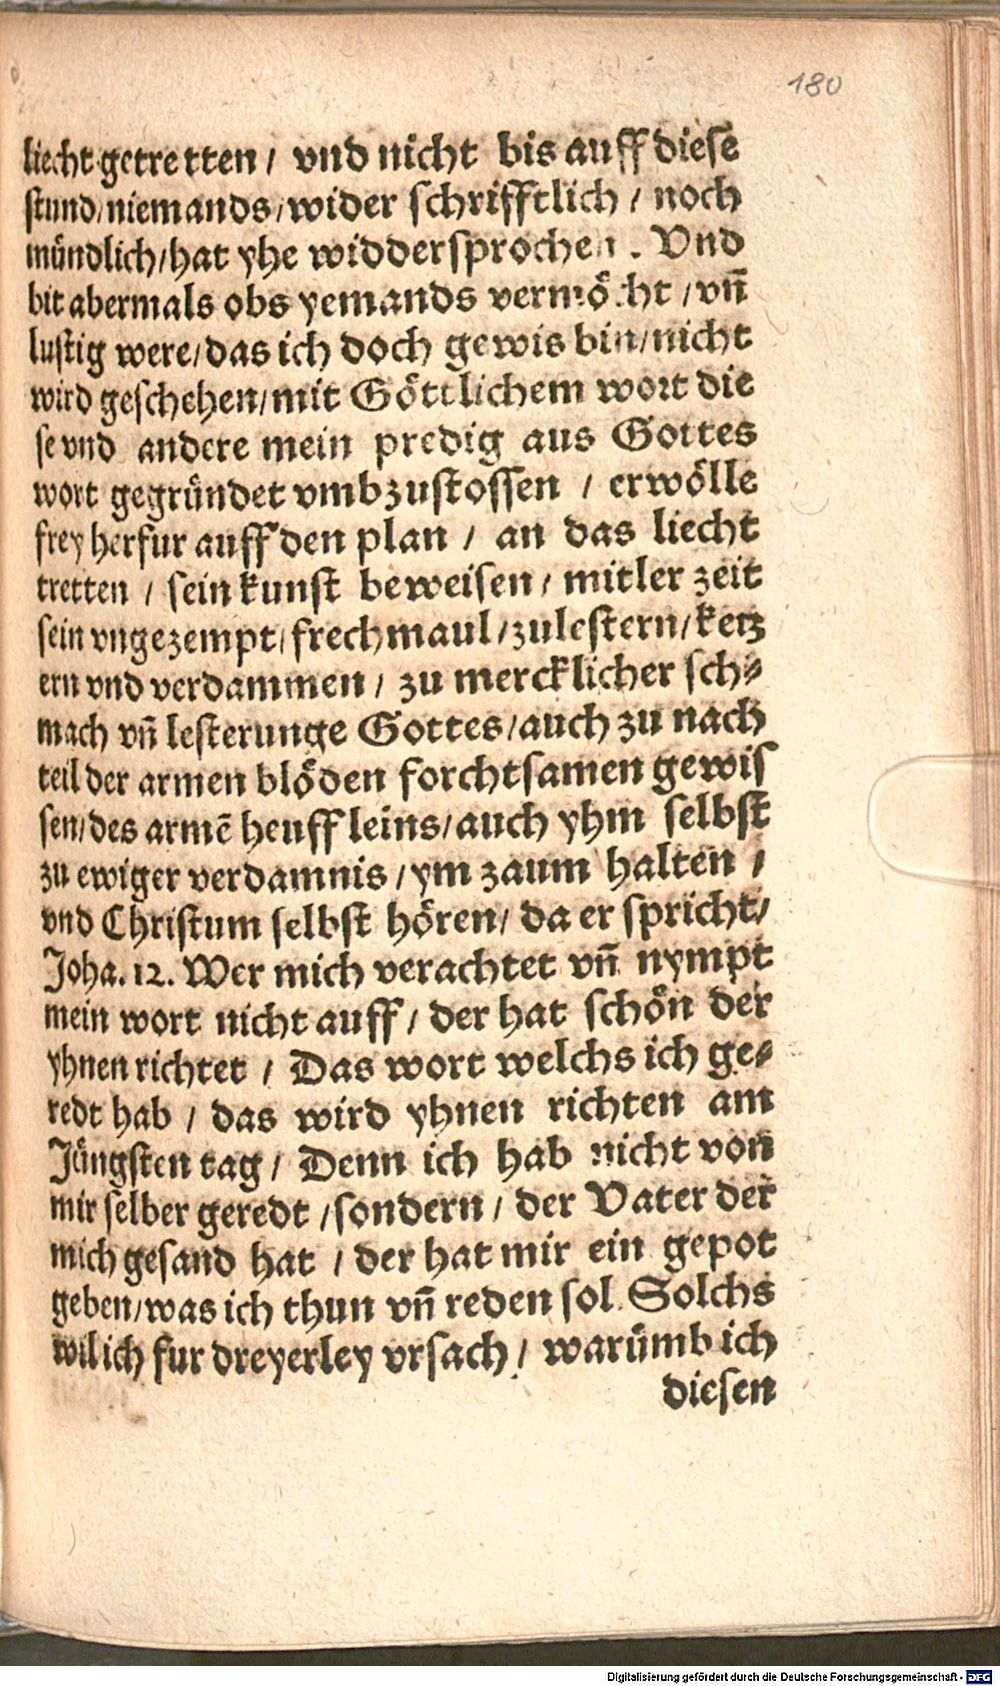 180
liecht getretten / vnd nicht bis auff diese
stund / niemands / wider schrifftlich / noch
mündlich / hat yhe widdersprochen . Vnd
bit abermals obs yemands vermöcht / vñ
lustig were / das ich doch gewis bin / nicht
wird geschehen / mit Göttlichem wort die
se vnd andere mein predig aus Gottes
wort gegründet vmbzustossen / er wölle
frey herfur auff den plan / an das liecht
tretten / sein kunst beweisen / mitler zeit
sein vngezempt / frech maul / zulestern / ketz
ern vnd verdammen / zu mercklicher sch⸗
mach vñ lesterunge Gottes / auch zu nach
teil der armen blöden forchtsamen gewis
sen / des armē heuffleins / auch yhm selbst
zu ewiger verdamnis / ym zaum halten /
vnd Christum selbst hören / da er spricht /
Joha. 12. Wer mich verachtet vñ nympt
mein wort nicht auff / der hat schön der
yhnen richtet / Das wort welchs ich ge⸗
redt hab / das wird yhnen richten am
Jüngsten tag / Denn ich hab nicht von
mir selber geredt / sondern / der Vater der
mich gesand hat / der hat mir ein gepot
geben / was ich thun vñ reden sol. Solchs
wil ich fur dreyerley vrsach / warümb ich
diesen
Digitalisierung gefördert durch die Deutsche Forschungsgemeinschaft - DFG